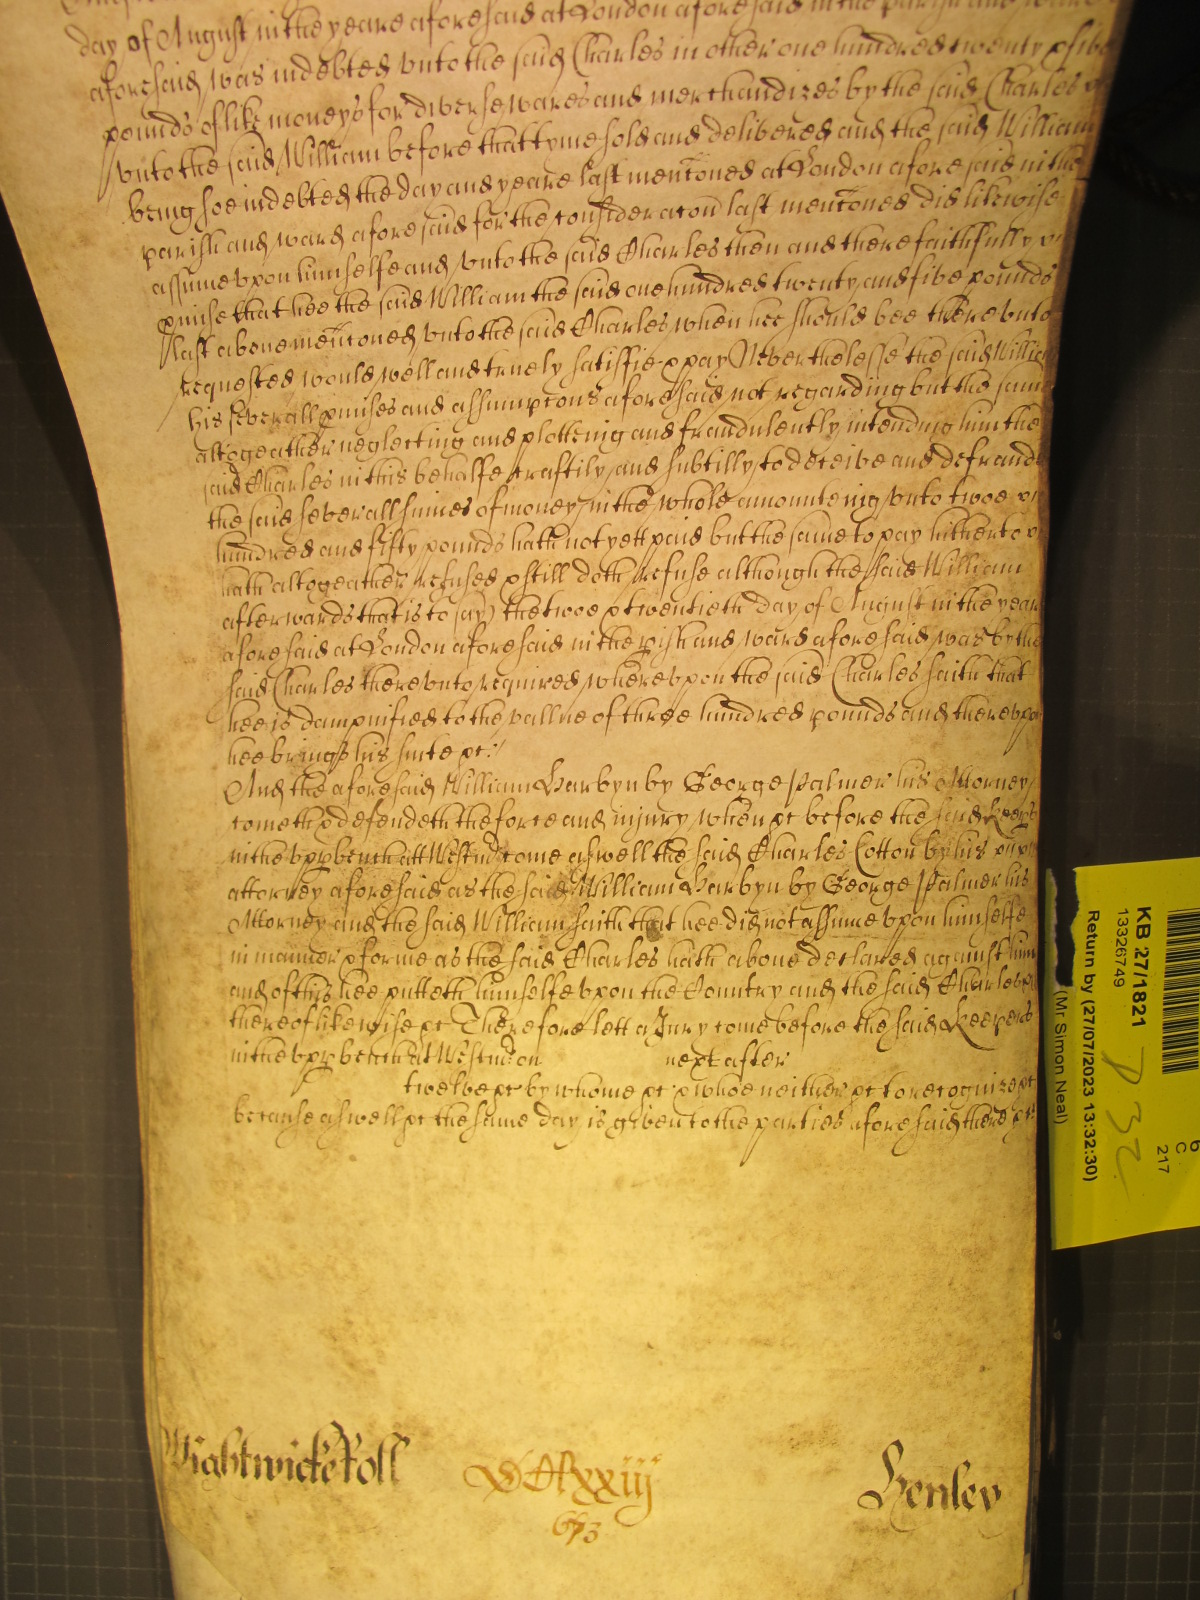 day of August in the yeare aforesaid at London aforesaid in the parish and
aforesaid was indebted unto the said Charles in other one hundred twenty & five
pounds of like moneys for diverse wares and merchandizes by the said Charles
unto the said William before that tyme sold and delivered and the said William
being soe indebted the day and yeare last mencõned at London aforesaid in the
parish and ward aforesaid for the consideracõn last mencõned did likewise
assume upon himselfe and unto the said Charles then and there faithfully
pmise that hee the said William the said one hundred twenty and five pounds
last above mencõned unto the said Charles when hee should bee there unto
requested would well and truely satisfie & pay Neverthelesse the said William
his severall pmises and assumpcons aforesaid not regarding but the same
altogeather neglecting and plotteing and fraudulently intending him the
said Charles in this behalfe craftily and subtilly to deceive and defraud
the said severall sumes of money in the whole amounteing unto twoe
hundred and fifty pounds hath not yett paid but the same to pay hitherto
hath altogeather refused & still doth refuse although the said William
afterwards that is to say) the twoe & twentieth day of August in the yeare
aforesaid at London aforesaid in the pish and ward aforesaid was by the
said Charles thereunto required whereupon the said Charles saith that
hee is dampnified to the vallue of three hundred pounds and thereupon
hee brings his suite &c:/
And the aforesaid William Harbyn by George Palmer his Attorney
cometh & defendeth the force and injury when &c before the said Keeps
in the upp bench att Westmr come aswell the said Charles Cotton by his
attorney aforesaid as the said William Harbyn by George Palmer his
Attorney and the said William saith that hee did not assume upon himselfe
in manner & forme as the said Charles hath above declared against him
and of this hee putteth himselfe upon the Country and the said Charles
thereof likewise &c Therefore lett a Jury come before the said Keepers
in the upp bench at Westmr on next after
twelve &c by whome &c & whoe neither &c to recognize &c
because aswell &c the same day is given to the parties aforesaid there &c
Wightwicke Roll
xxiij
673
Henley
KB 27/1821
13326749
Return by (27/07/2023 13:32:30)
(Mr Simon Neal)
6
C
217
P 32